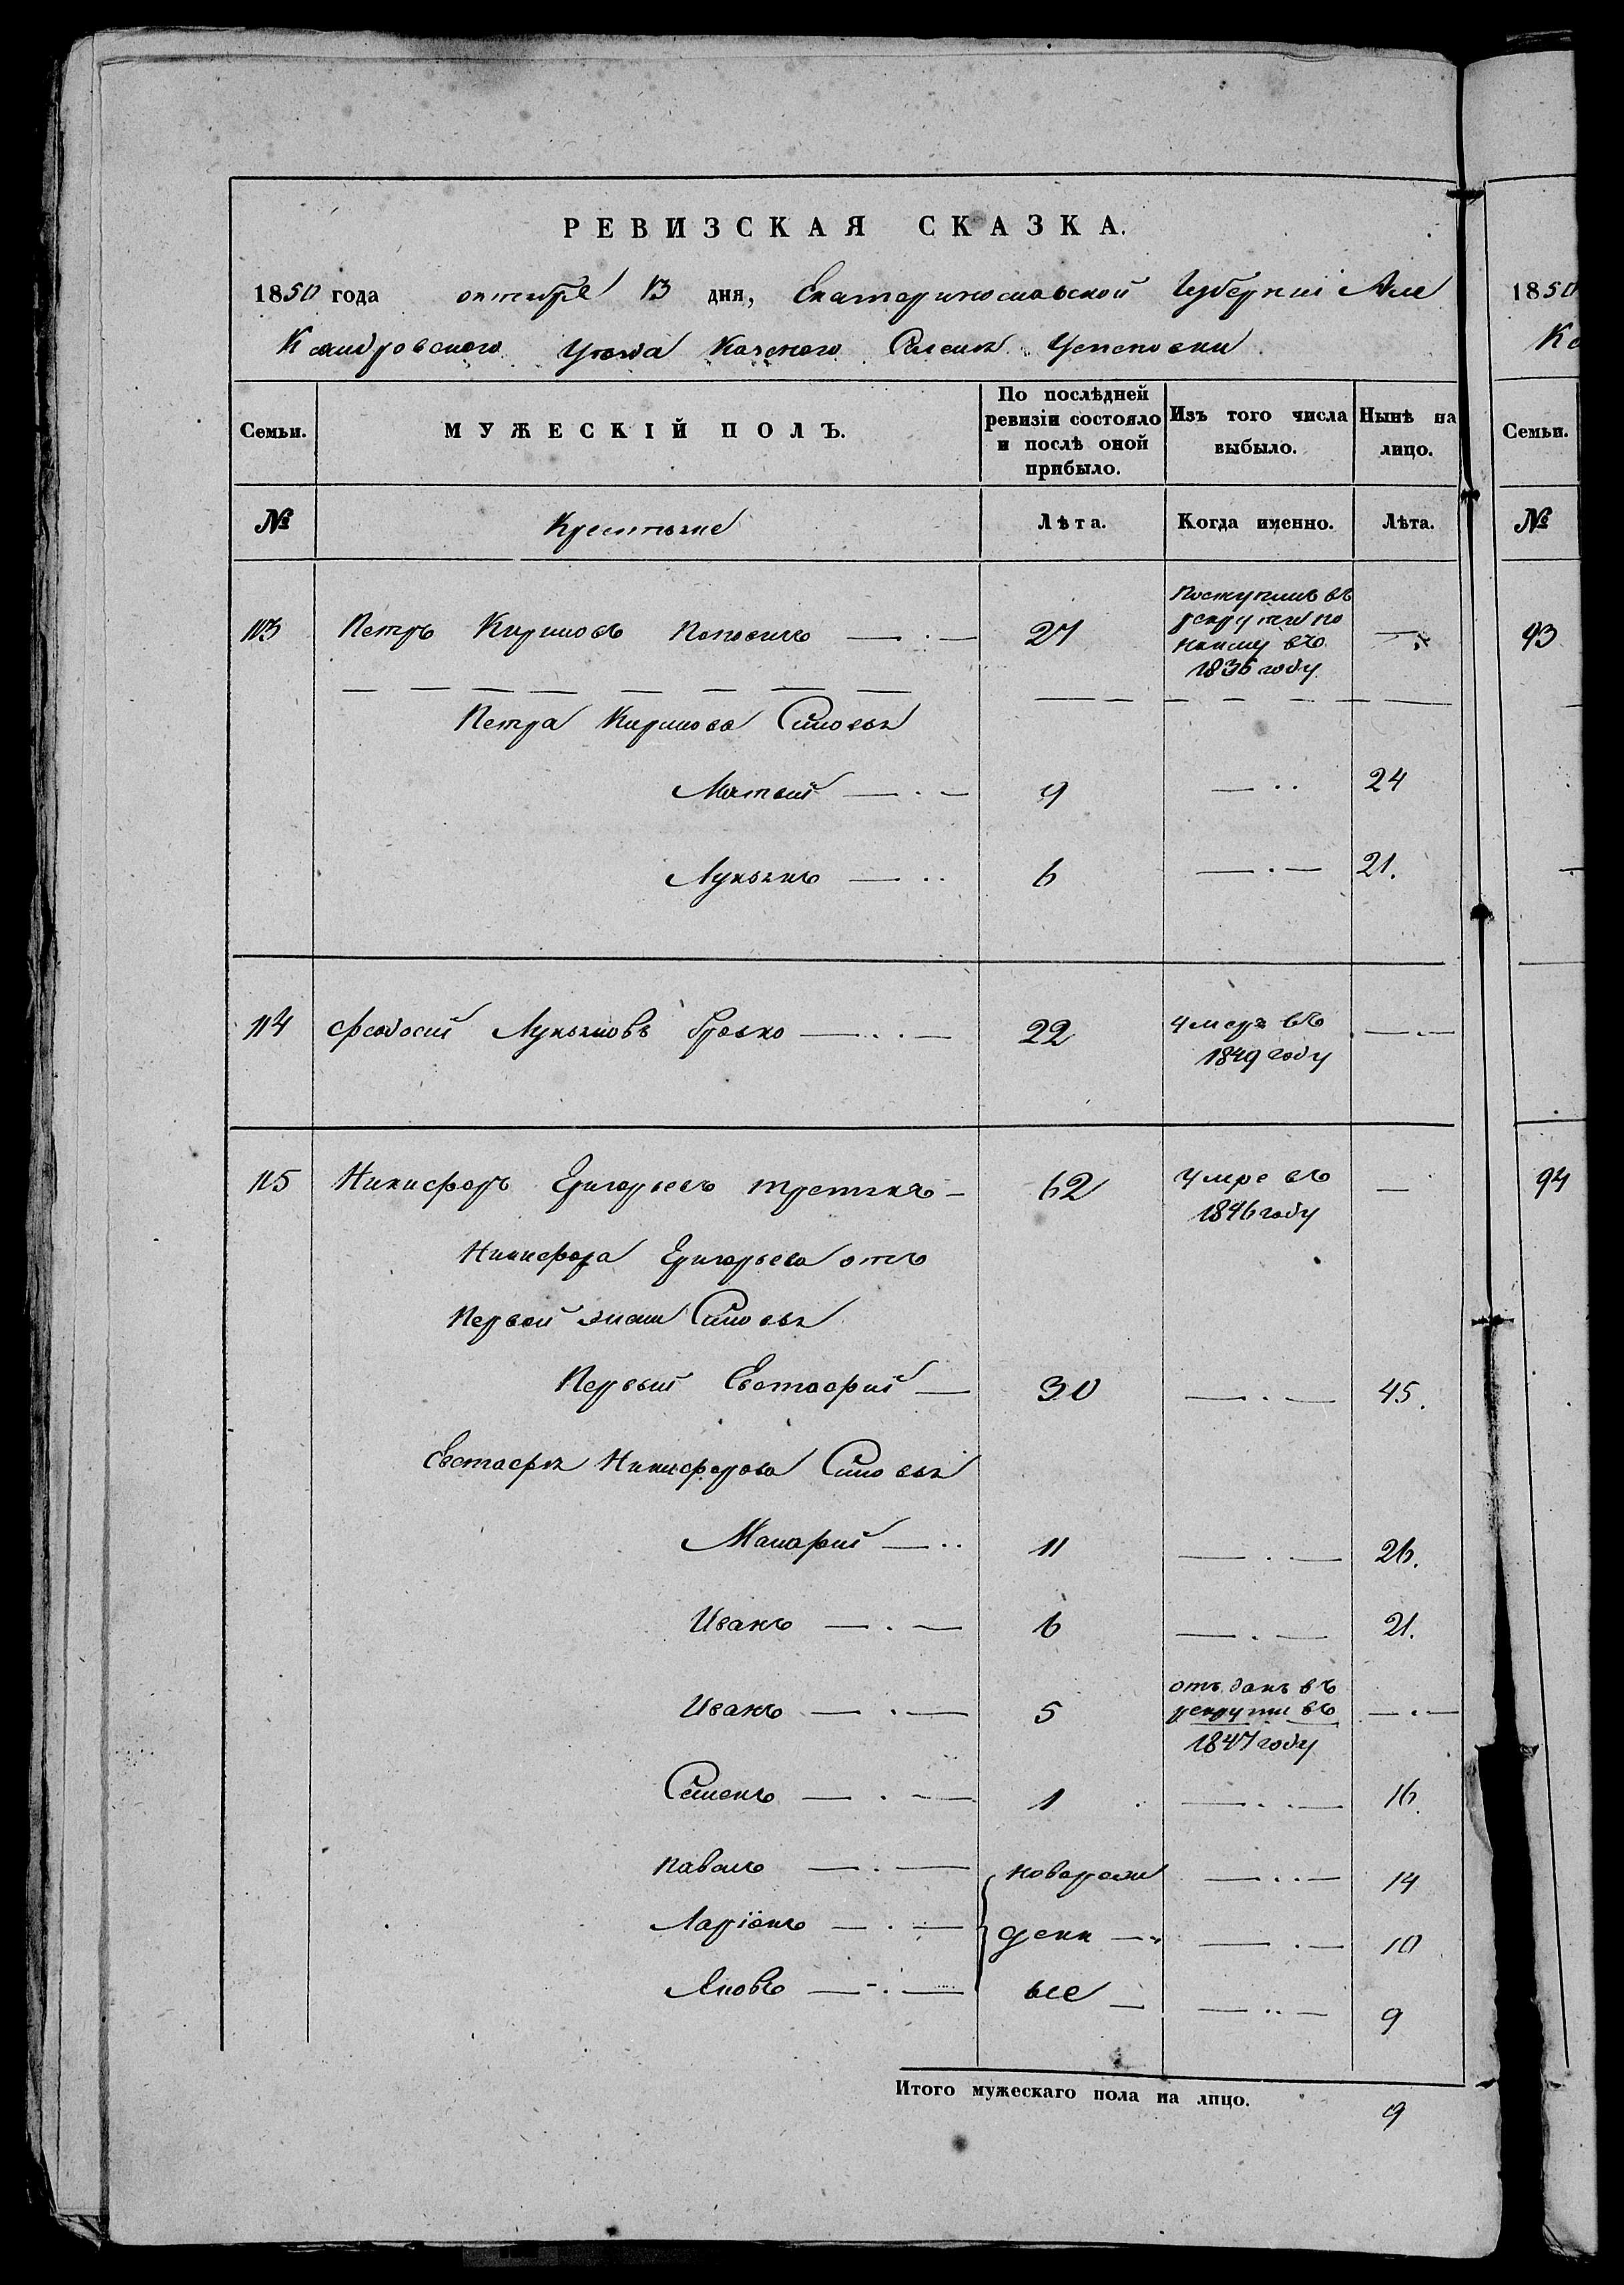 РЕВИЗСКАЯ СКАЗКА.
1850 года октября 13 дня, Екатеринославской Губернии Але
ксандровского Уезда Казеного Селения Успеновки
Семьи.
МУЖЕСКІЙ ПОЛЪ.
По послѣдней
ревизіи состояло
и послѣ оной
прибыло.
Изъ того числа
выбыло.
Нынѣ на
лицо.
№ Крестьяне Лѣта. Когда именно. Лѣта.
113 Петръ Кириловъ 27
Поступилъ въ
рекруты по
найму въ
1836 году
Петра Кирилова Сыновья
Матвей 9 24
Лукьянъ 6 21.
114 Феодосий Лукьяновъ 22
умеръ въ
1849 году
115 Никифоръ Григорьевъ третякъ 62
умре въ
1846 году
Никифора Григорьева отъ
Первой жены Сыновья
Первый Евстафий 30 45.
Евстафия Никифорова Сыновья
Макарий 11 26.
Иванъ 6 21.
Иванъ 5
отъданъ въ
рекруты въ
1847 году
Семенъ 1 16
Павелъ новорож 14
Ларіонъ денн 10
Яковъ ые 9
Итого мужескаго пола на лицо. 9
1850
Семьи.
№
93
94